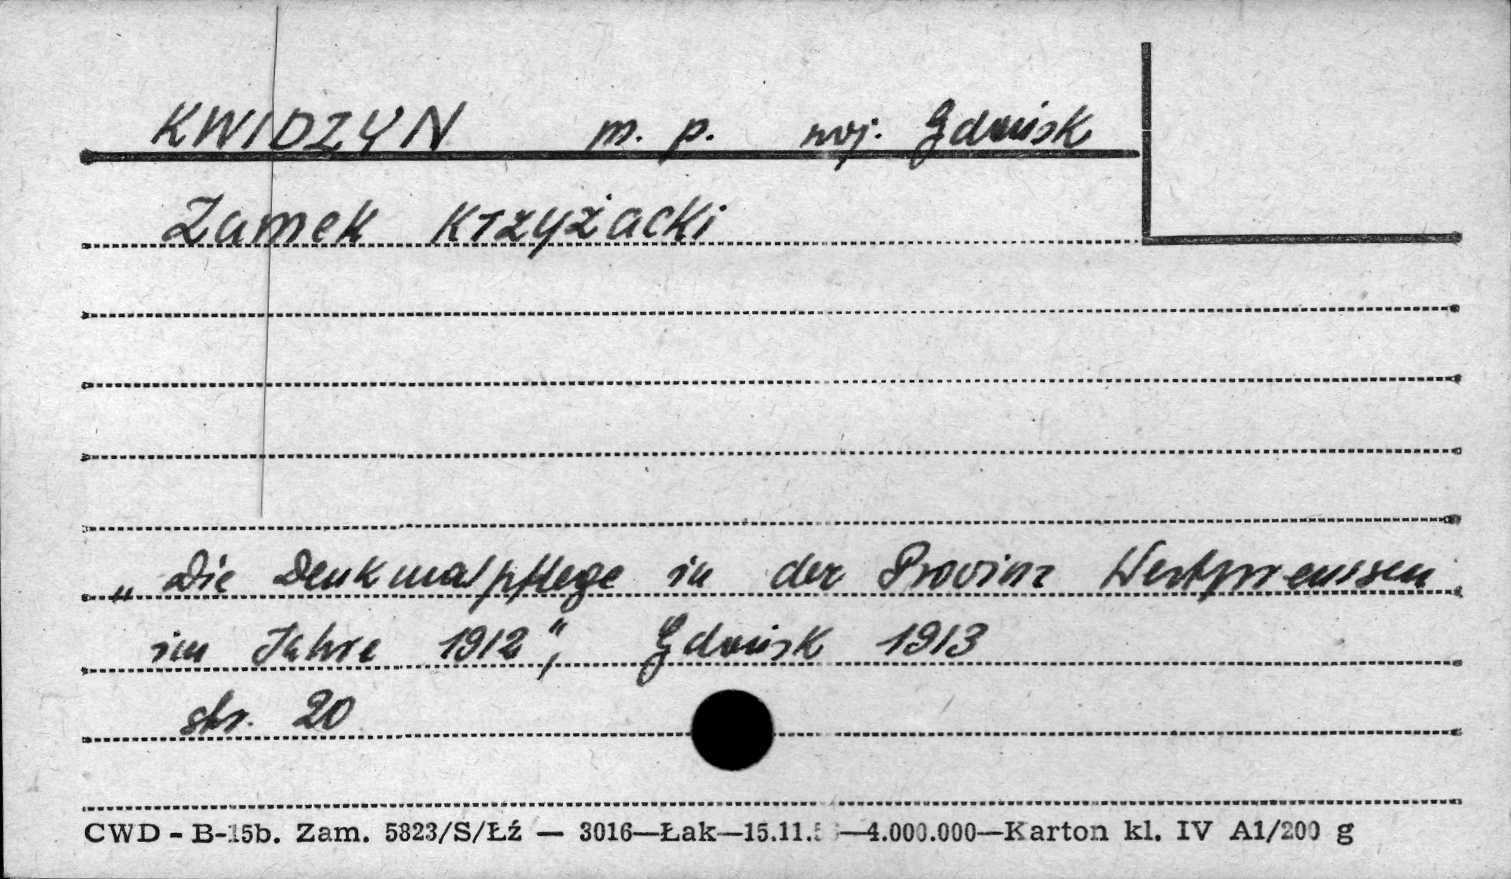 KWIDZYN m. p. woj. Gdańsk
Zamek Krzyżacki
„Die Denkmalpflege in der Provinz Westpreussen
im Jahre 1912", Gdańsk 1913
str. 20
CWD - B-15b. Zam. 5823/S/Łź — 3016—Łak—15.11. —4.000.000—Karton kl. IV A1/200 g